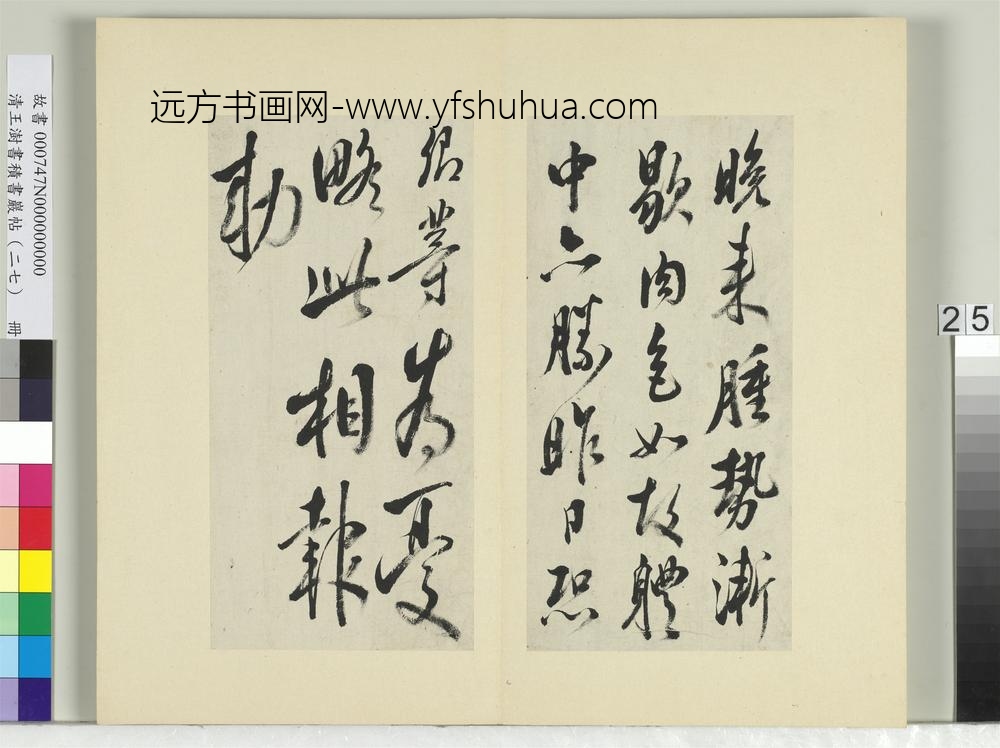 远方书画网-www.yfshuhua.com
晚来腫勢漸
歇肉色如故體
中亦勝昨日恐
卿等為憂
略此相報
勅
故書 000747N000000000
清王澍書積書巖帖（二七） 冊
25